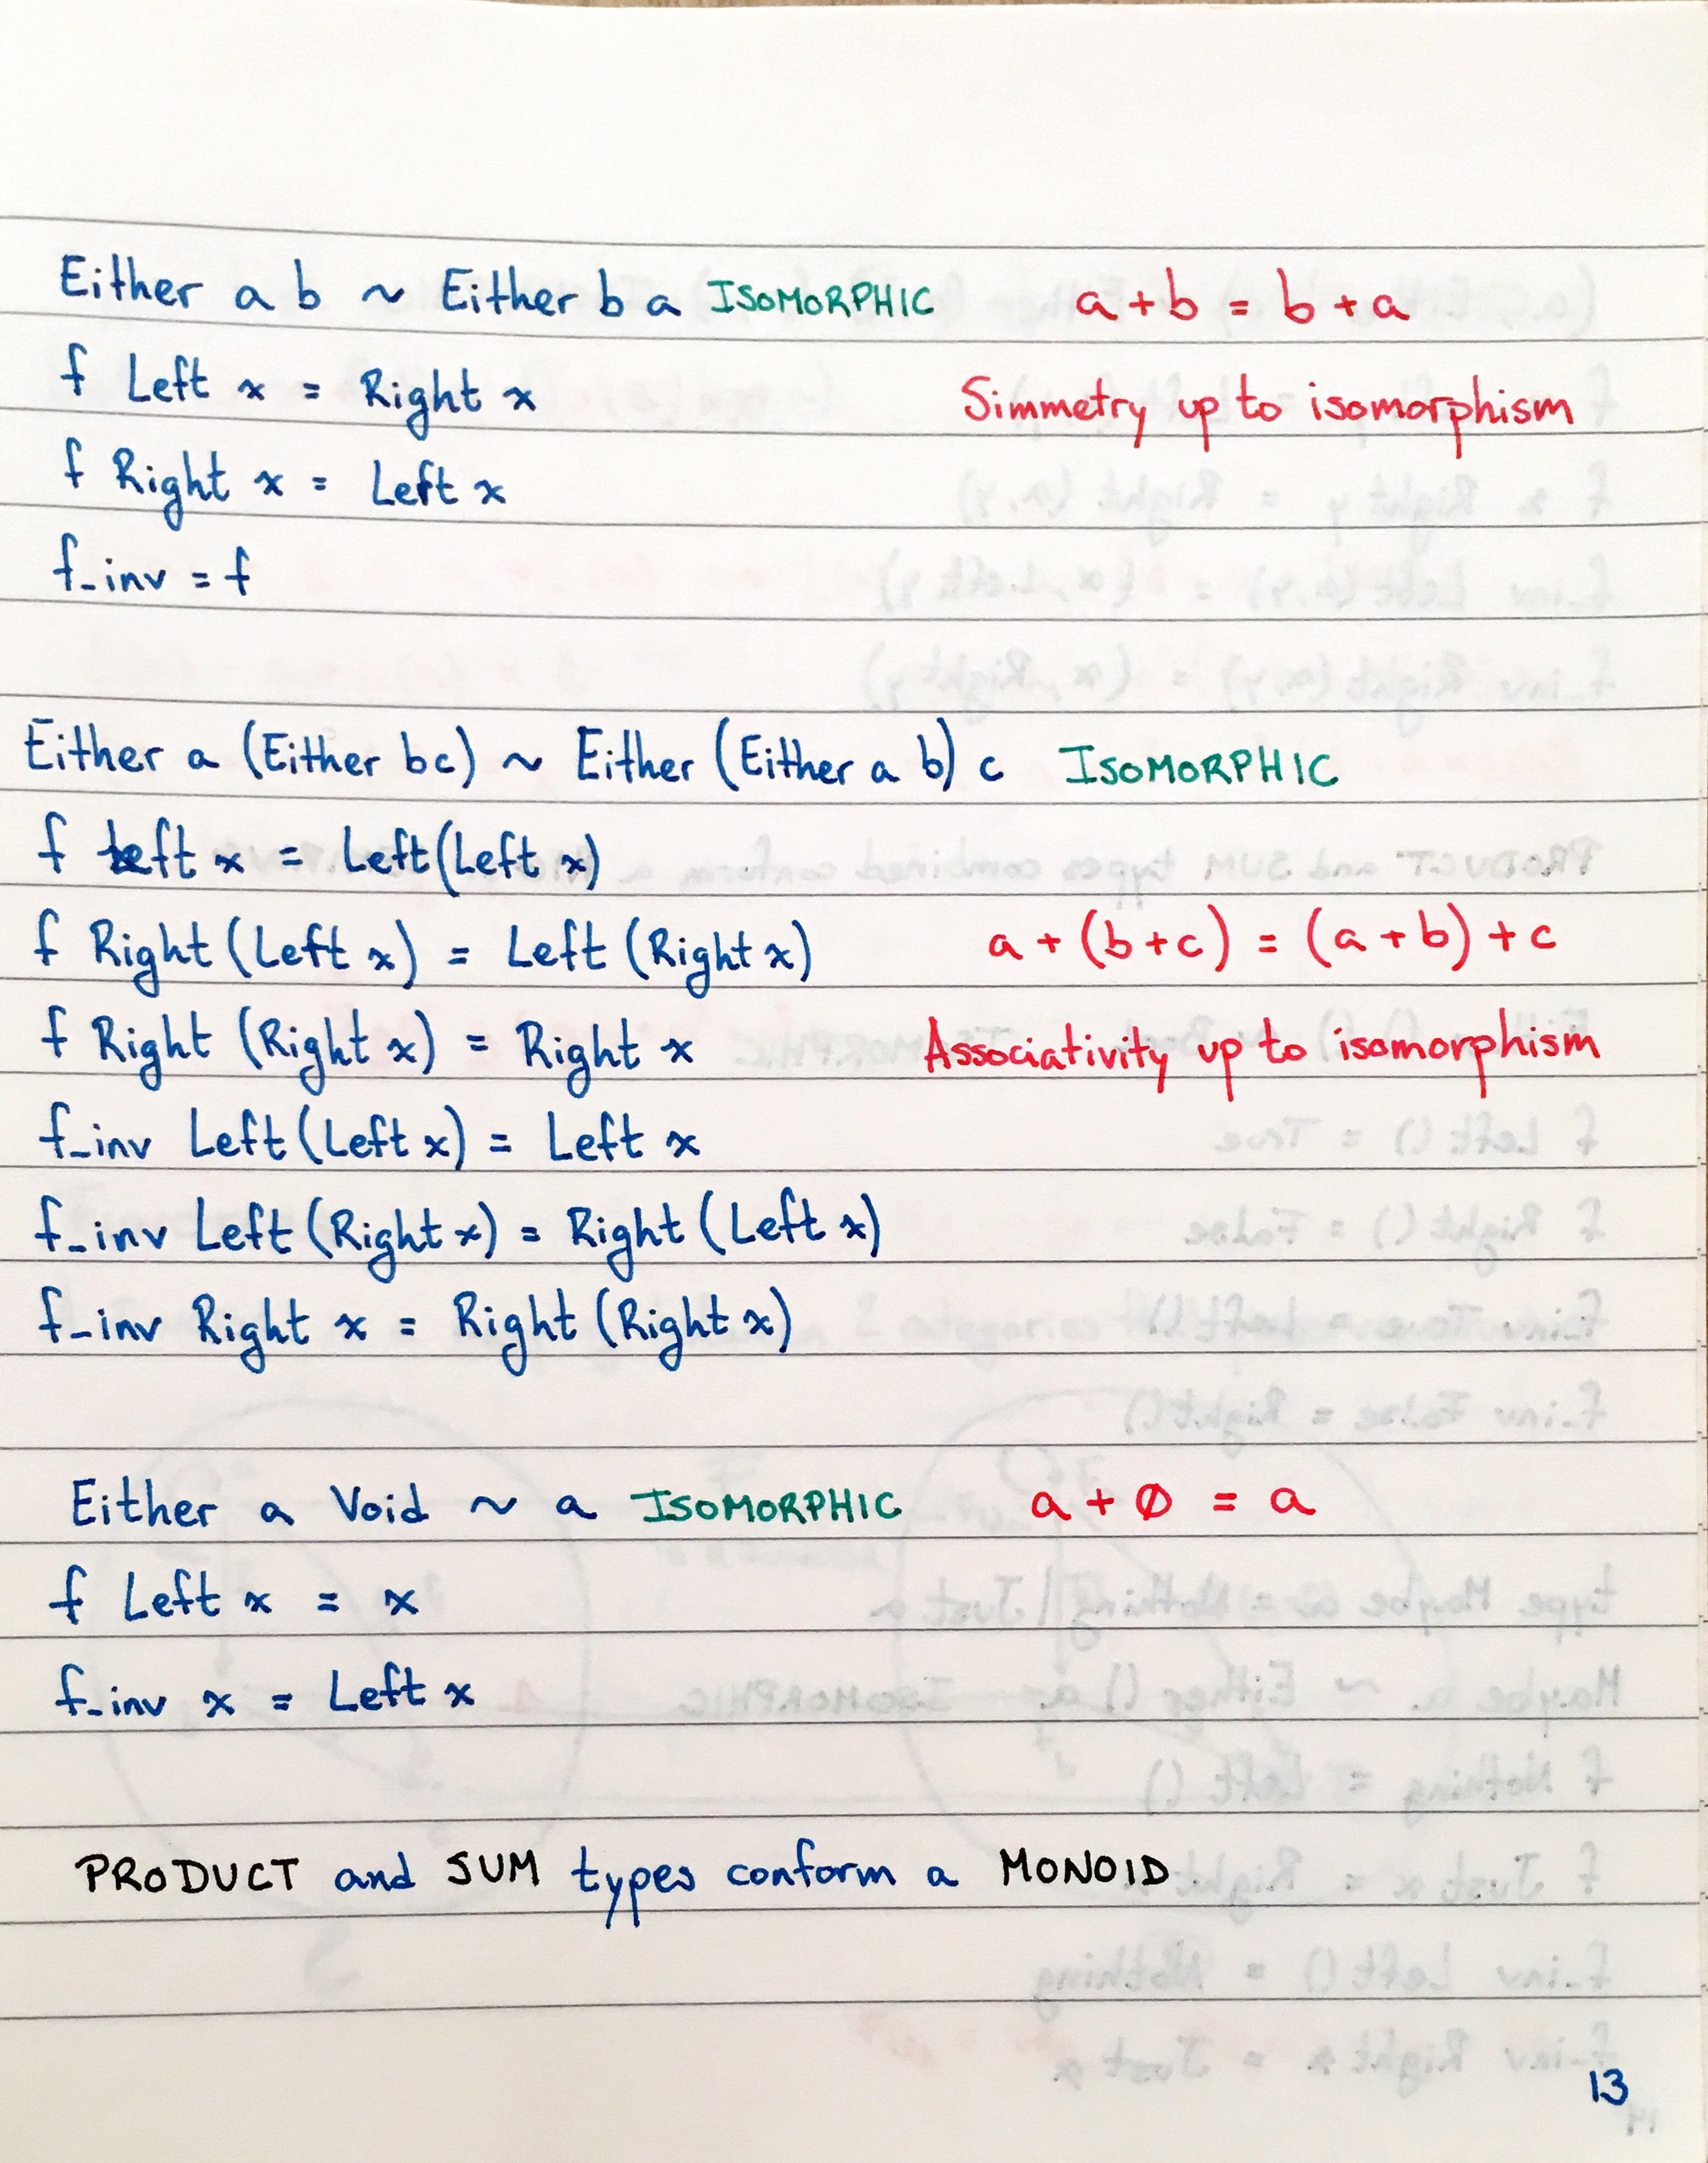 Either a b ~ Either b a ISOMORPHIC a + b = b + a
f Left x = Right x Simmetry up to isomorphism
f Right x = Left x
f_inv = f
Either a (Either b c) ~ Either (Either a b) c ISOMORPHIC
f Left x = Left (Left x)
f Right (Left x) = Left (Right x) a + (b + c) = (a + b) + c
f Right (Right x) = Right x Associativity up to isomorphism
f_inv Left (Left x) = Left x
f_inv Left (Right x) = Right (Left x)
f_inv Right x = Right (Right x)
Either a Void ~ a ISOMORPHIC a + 0 = a
f Left x = x
f_inv x = Left x
PRODUCT and SUM types conform a MONOID
13